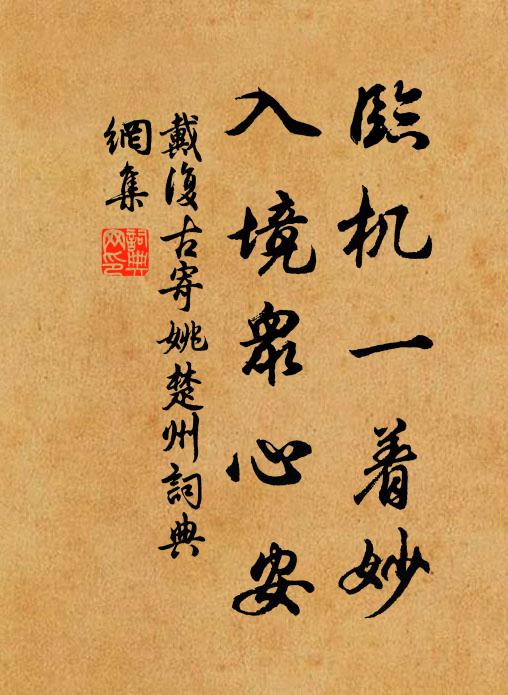 臨机一着妙
入境衆心安
戴復古寄姚楚州詞典
網集
詞典網印